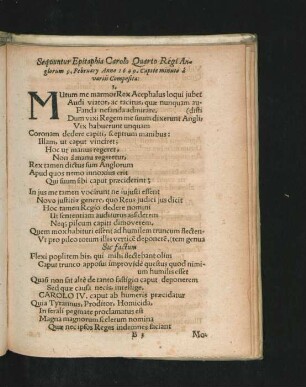 Sequuntur Epitaphia Carolo Quarto Regi An-
glorum 9. February Anno 1649. Capite minuto à
variis Composita:
MUtum me marmor Rex Acephalus loqui jubet
Audi viator, ac tacitus, quæ nunquam au-
Fanda nefanda admittere. (disti
Dum vixi Regem me suum dixerunt Angli,
Vix habuerunt unquam
Coronam dedere capiti, sceptrum manibus:
Illam, ut caput vinciret:
Hoc ut manus regeret,
Non à manu regeretur,
Rex tamen dictus sum Anglorum
Apud quos nemo innoxius erit
Qui suum sibi caput præciderint:
In jus me tamen vocârunt ne injusti essent
Novo justitiæ genere, quo Reus judici jus dicit
Hoc tamen Regio dedere nomini
Ut sententiam auditurus assiderim
Neque pileum capiti dimoverem,
Quem mox habituri essent ad humilem truncum flecten-
Ut pro pileo totum illis vertice deponerē, (tem genua
Sic factum
Flexi poplitem his, qui mihi flectebant olim
Caput trunco apposui improvidè questus quod nimi-
um humilis esset
Quasi non sit alte de tanto fastigio caput deponerem
Sed quæ causa necis, intellige.
CAROLO IV. caput ab humeris præcidatur
Quia Tyrannus, Proditor, Homicida.
In ferali pegmate proclamatus est
Magna magnorum scelerum nomina
Quæ nec ipsos Reges indemnes faciant
B 3 Mo-